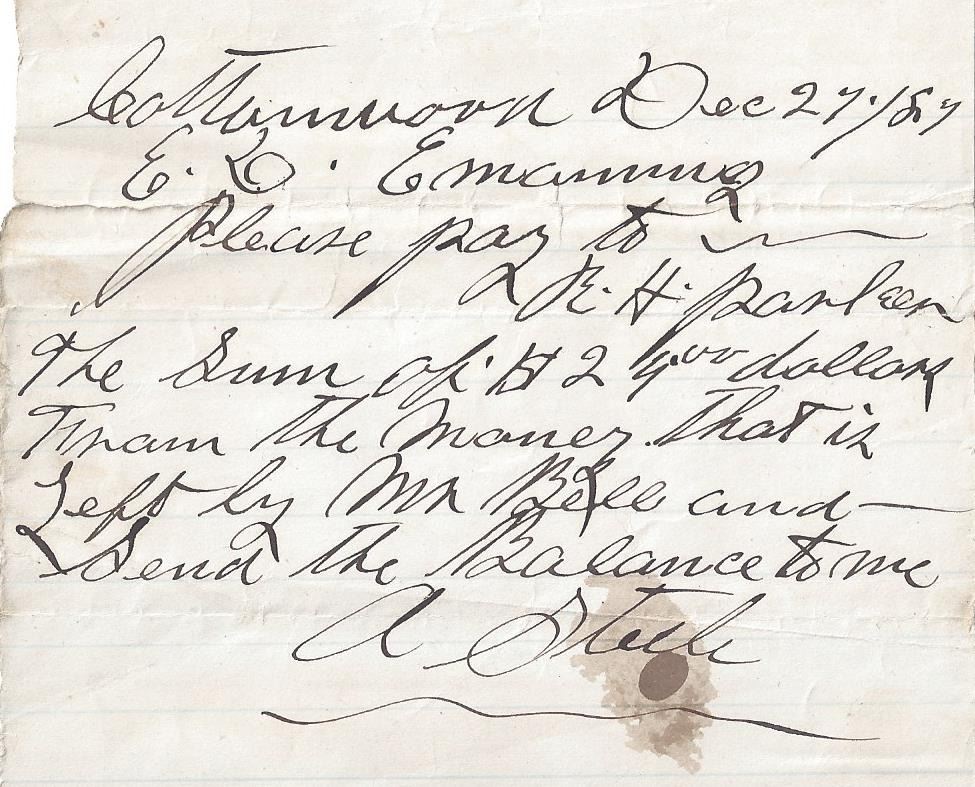 Cottonwood Dec 27. 187
E. D. Emanning
Please pay to
R. H. parken
the Sum of $ 2 4 00 dollars
From the money that is
Left by Mr Bell and
Send the Balance to me
A Steele